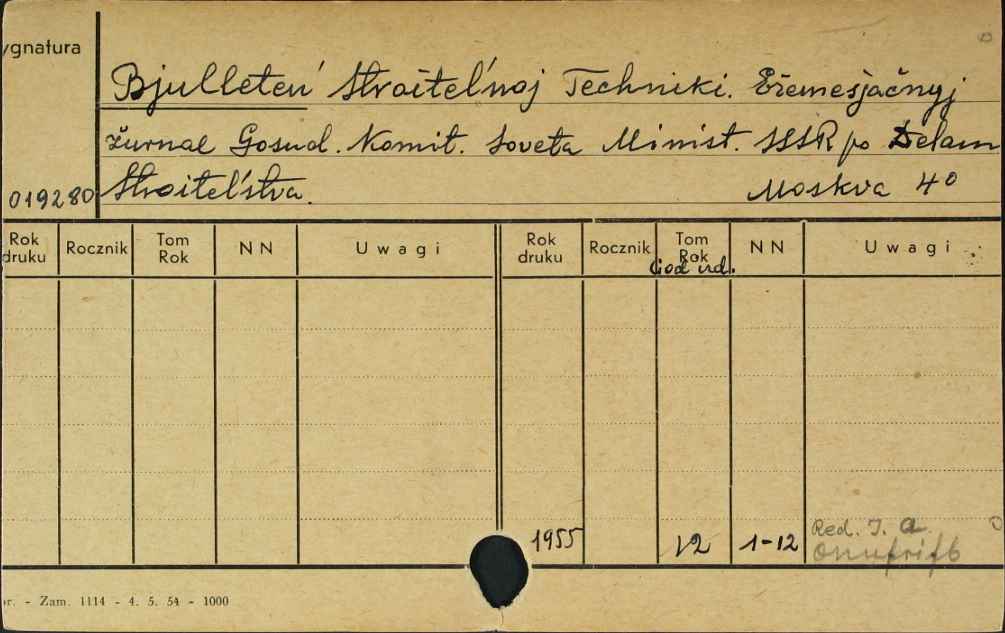 ygnatura
Bjulleteń Stroitel'noj Techniki. Ežemesjačnyj
žurnal Gosud. Komit. Soveta Minist. SSSR po Delam
019280 Stroitel'stva. Moskva 4°
Rok druku Rocznik Tom Rok N N Uwagi Rok druku Rocznik Tom Rok N N Uwagi
God izd.
1955 12 1-12 Red. I. A.
or. - Zam. 1114 - 4. 5. 54 - 1000